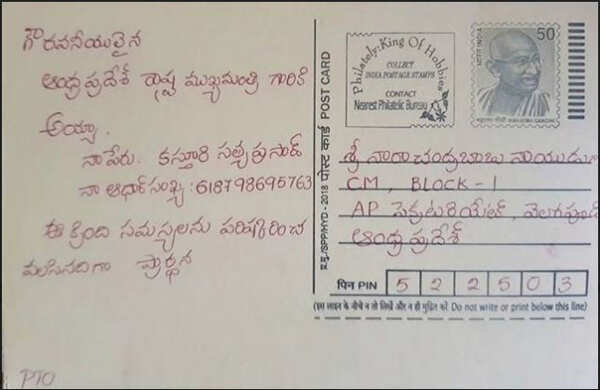 గౌరవనీయులైన
ఆంధ్రప్రదేశ్ రాష్ట్ర ముఖ్యమంత్రి గారికి
అయ్యా
నా పేరు. కస్తూరి సత్యప్రసాద్
నా ఆధార్ సంఖ్య : 618798695763
ఈ క్రింది సమస్యలను పరిష్కరించ
వలసినదిగా ప్రార్థన
PTO
POST CARD पोस्ट कार्ड
/SPP/HYD - 2018
Philately: King Of Hobbies
COLLECT
INDIA POSTAGE STAMPS
CONTACT
Nearest Philatelic Bureau
50
भारत INDIA
महात्मा गाँधी MAHATMA GANDHI
శ్రీ నారా చంద్రబాబు నాయుడు
CM, BLOCK - 1
AP సెక్రటరియేట్, వెలగపూడి
ఆంధ్రప్రదేశ్
पिन PIN 5 2 2 5 0 3
(इस लाइन के नीचे न तो लिखें और न ही मुद्रित करें Do not write or print below this line)